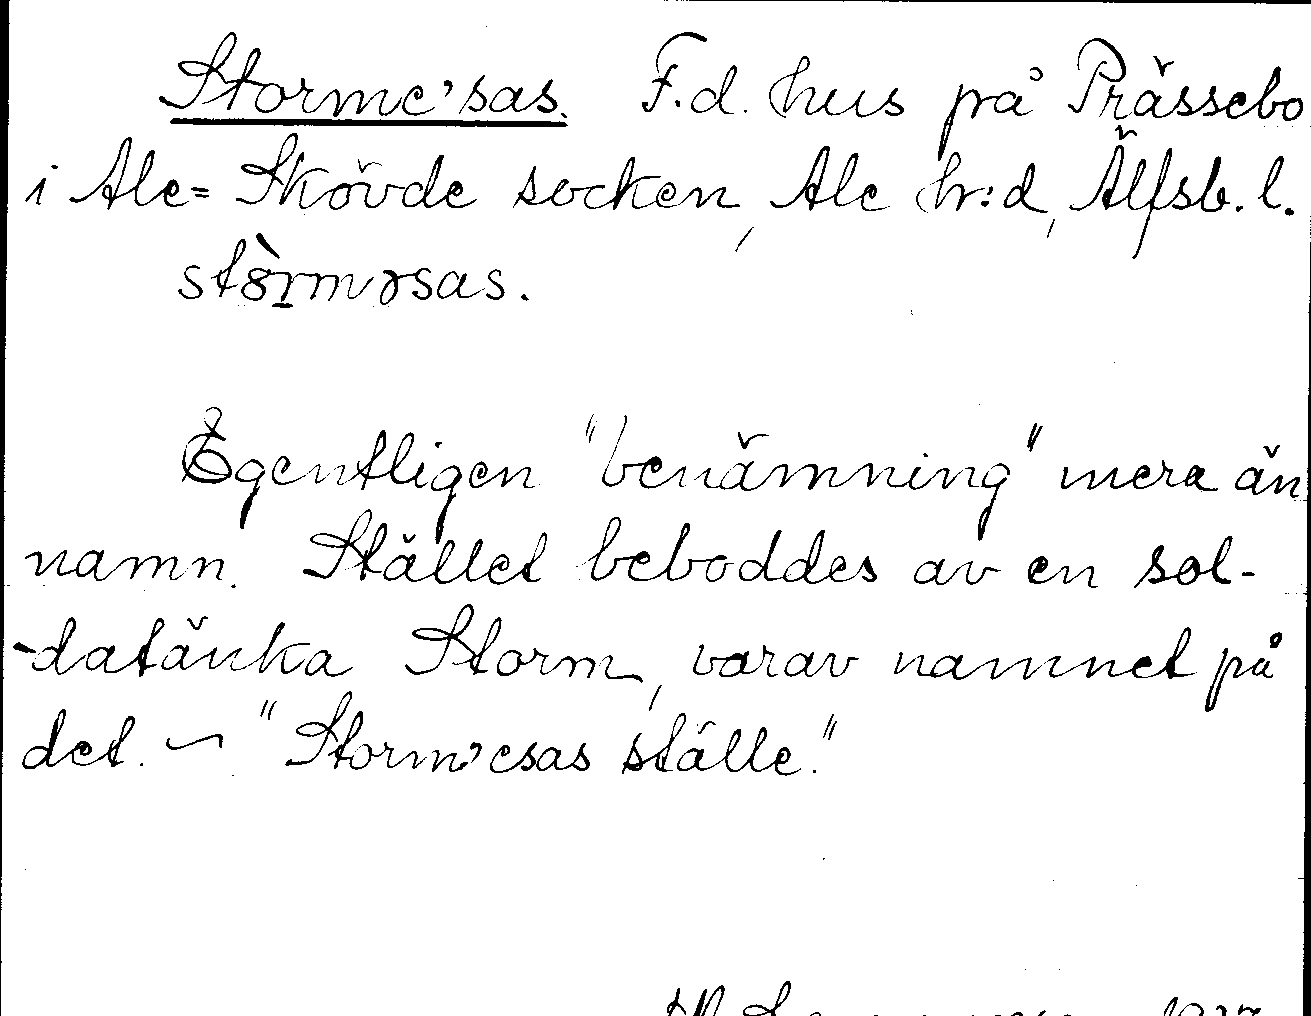 Storme'sas. F.d. hus på Prässebo
i Ale= Skövde socken, Ale hr:d, Älfsb. l.
stòrməsas.
Egentligen "benämning" mera än
namn. Stället beboddes av en sol-
-datänka Storm, varav namnet på
det. ~ "Storm'esas ställe."